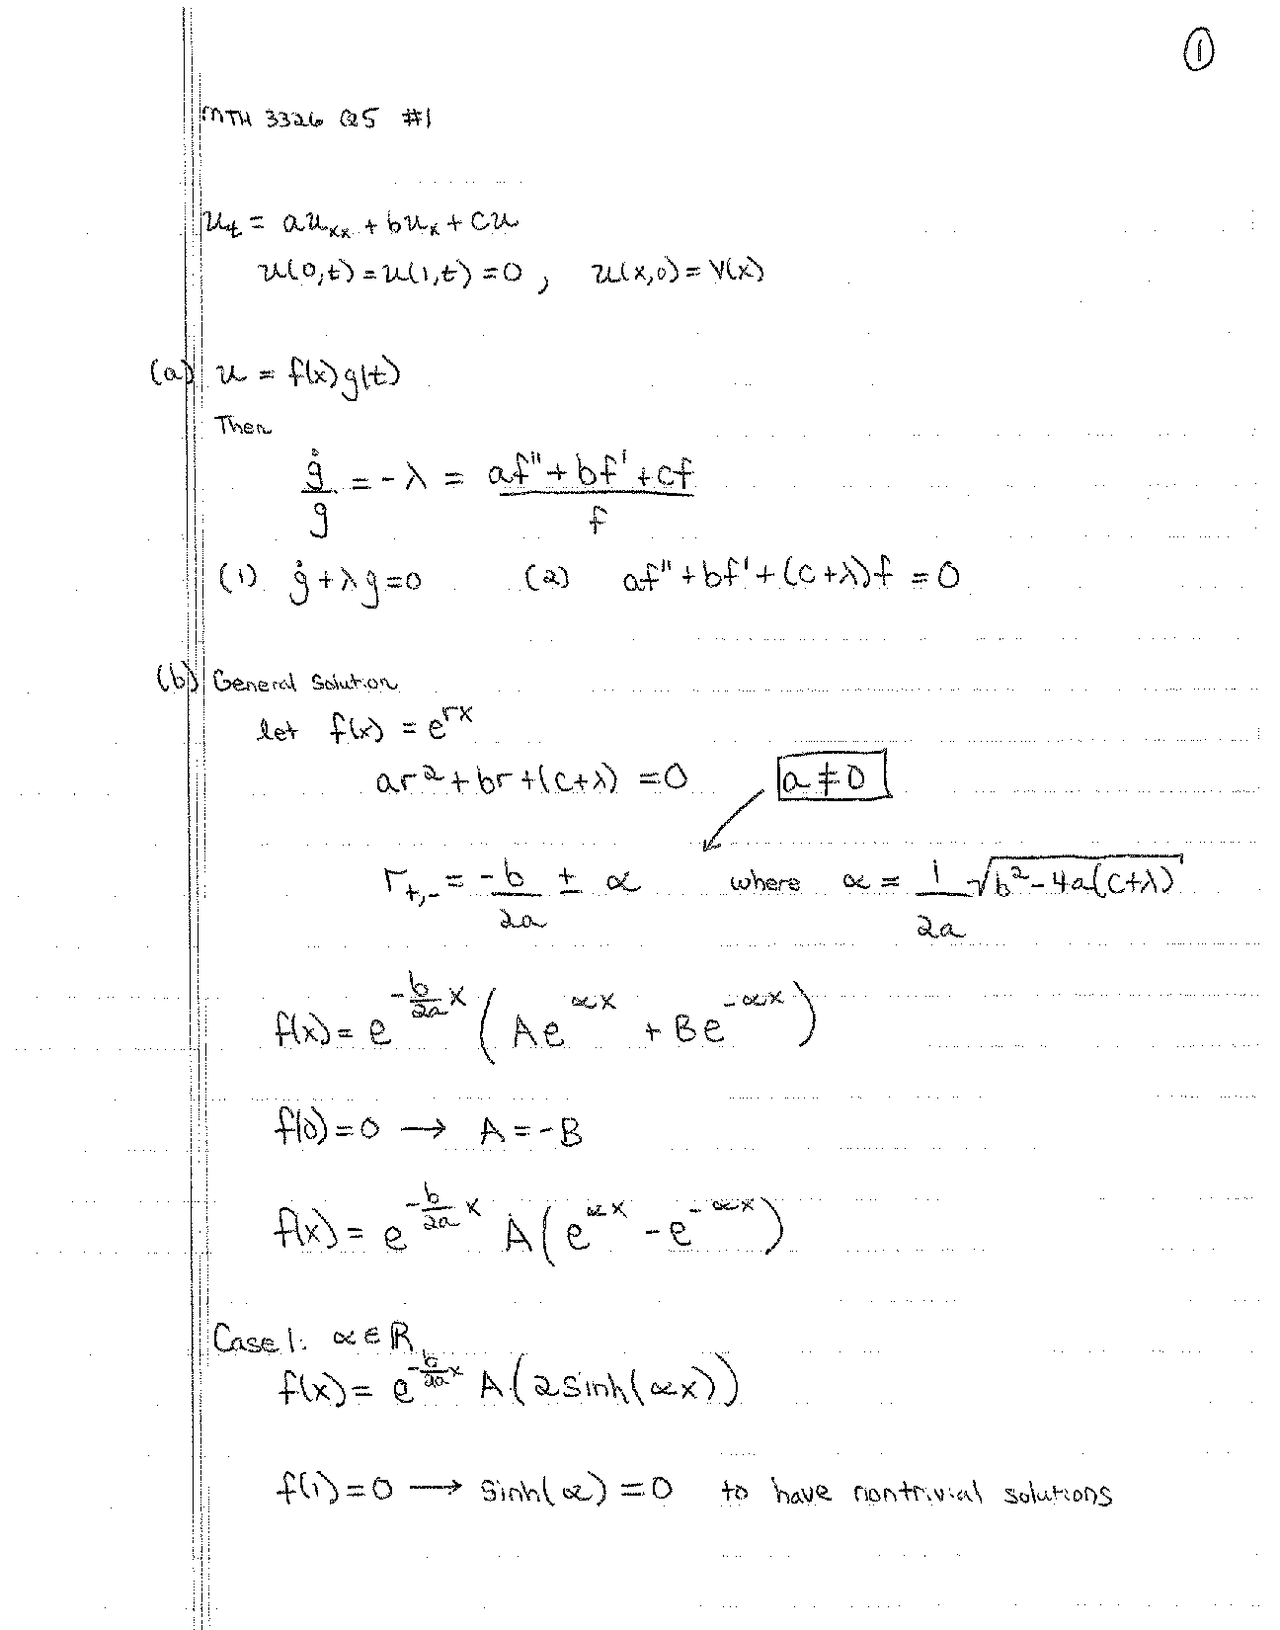 ①
MTH 3326 Q5 #1
u_t = au_xx + bu_x + cu
u(0,t) = u(1,t) = 0 , u(x,0) = V(x)
(a) u = f(x)g(t)
Then
ġ/g = -λ = (af" + bf' + cf)/f
(1) ġ + λg = 0 (2) af" + bf' + (c+λ)f = 0
(b) General Solution
let f(x) = e^{rx}
ar² + br + (c+λ) = 0 a ≠ 0
r_{+,-} = -b/2a ± α where α = 1/2a √(b² - 4a(c+λ))
f(x) = e^{-b/2a x} (Ae^{αx} + Be^{-αx})
f(0) = 0 → A = -B
f(x) = e^{-b/2a x} A(e^{αx} - e^{-αx})
Case 1: α ∈ ℝ
f(x) = e^{-b/2a x} A(2sinh(αx))
f(1) = 0 → sinh(α) = 0 to have nontrivial solutions